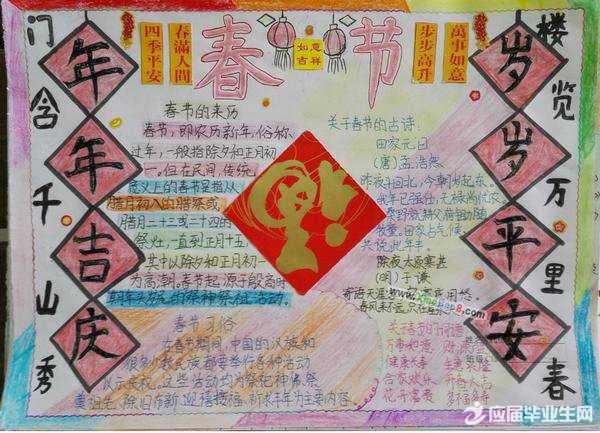 春节
四季平安
春滿人間
如意
吉祥
步步高升
萬事如意
门含千山秀
楼览万里春
年年吉庆
岁岁平安
春节的来历
春节，即农历新年，俗称
过年，一般指除夕和正月初
一。但在民间，传统
意义上的春节是指从
腊月初八的腊祭或
腊月二十三或二十四的
祭灶，一直到正月十五
其中以除夕和正月初一
为高潮。春节起源于殷商时
期年头岁尾的祭神祭祖活动。
春节习俗
在春节期间，中国的汉族和
很多少数民族都要举行各种活动
以示庆祝。这些活动均为祭祀神佛、祭
奠祖先、除旧布新、迎禧接福、祈求丰年为主要内容
关于春节的古诗：
田家元日
（唐）孟浩然
昨夜斗回北，今朝岁起东。
我年已强仕，无禄尚忧农。
田家占气候，
共说此年丰。
除夜太原寒甚
（明）于谦
寄语天涯客，
春风来不远，只在
万事如意
健康长寿
合家欢乐
花开富贵
www.YJBYS8.com
应届毕业生网